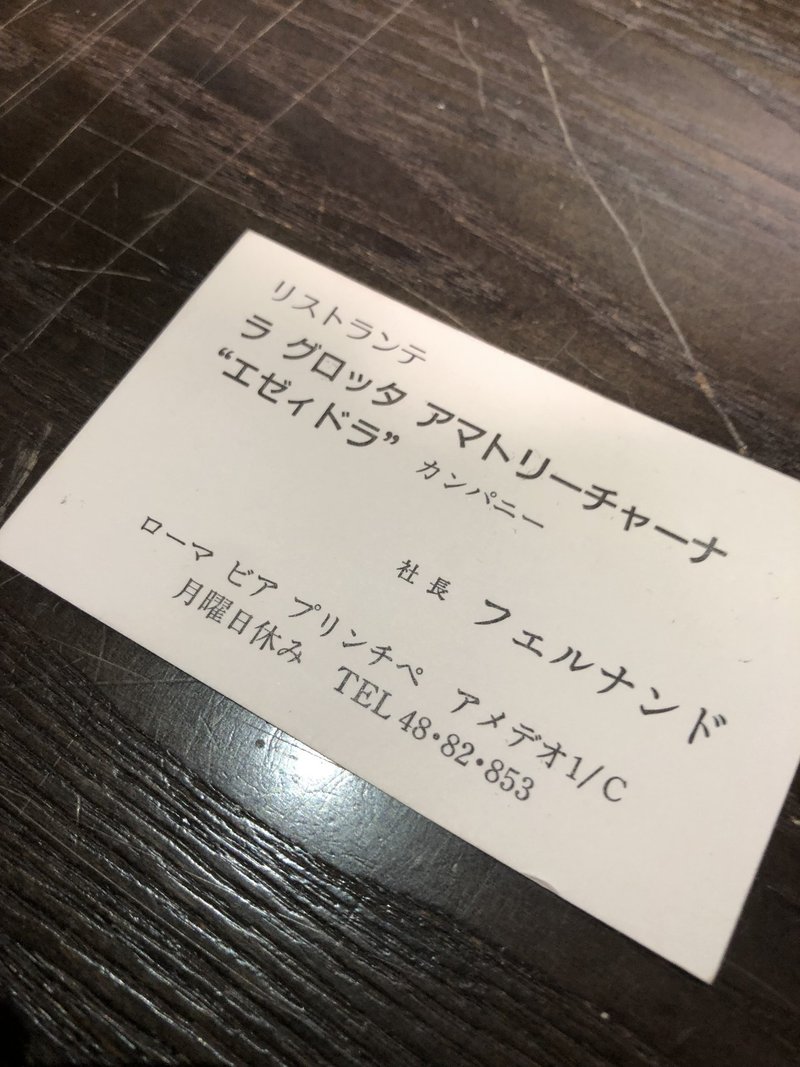 リストランテ
ラ グロッタ アマトリーチャーナ
“エゼィドラ” カンパニー
社長 フェルナンド
ローマ ビア プリンチペ アメデオ1/C
月曜日休み TEL 48・82・853